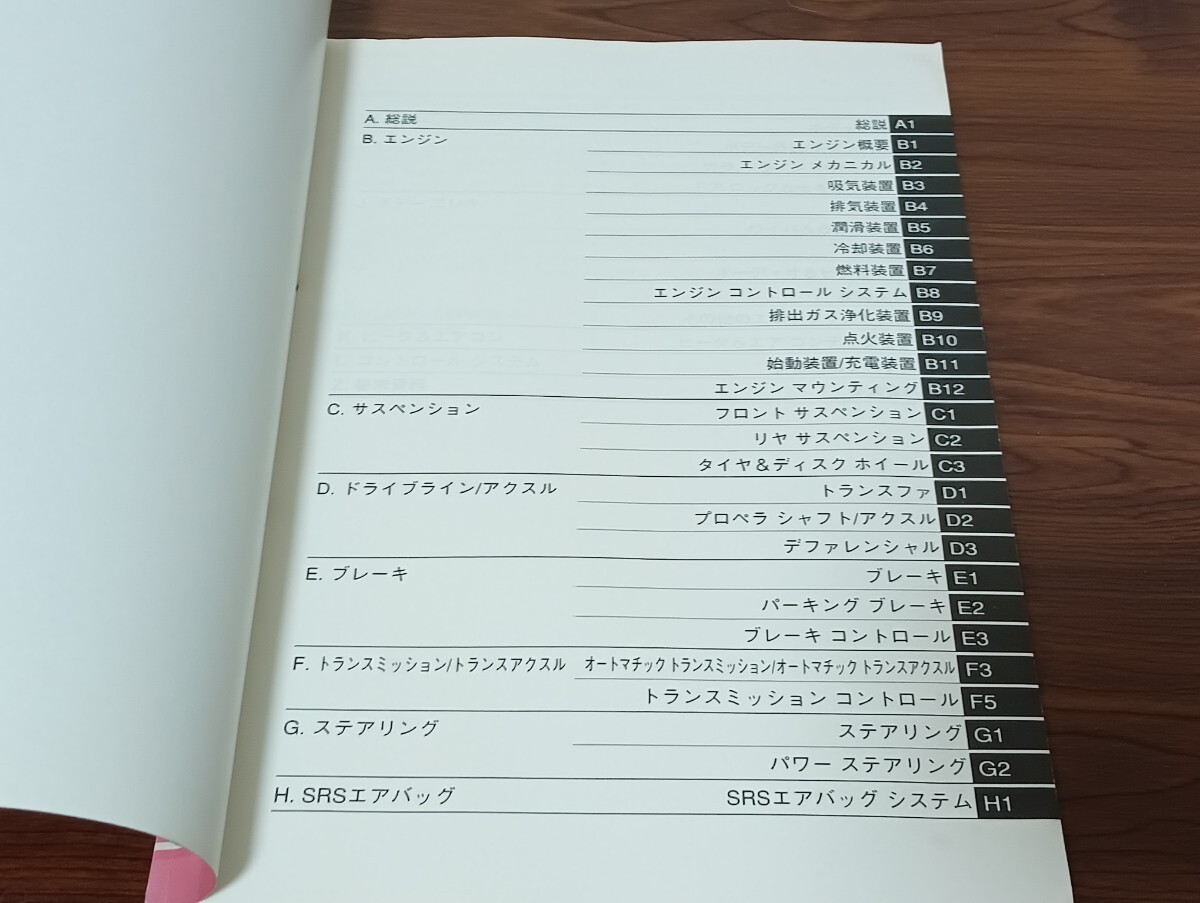 A. 総説 総説 A1
B. エンジン エンジン概要 B1
エンジン メカニカル B2
吸気装置 B3
排気装置 B4
潤滑装置 B5
冷却装置 B6
燃料装置 B7
エンジン コントロール システム B8
排出ガス浄化装置 B9
点火装置 B10
始動装置/充電装置 B11
エンジン マウンティング B12
C. サスペンション フロント サスペンション C1
リヤ サスペンション C2
タイヤ&ディスク ホイール C3
D. ドライブライン/アクスル トランスファ D1
プロペラ シャフト/アクスル D2
デファレンシャル D3
E. ブレーキ ブレーキ E1
パーキング ブレーキ E2
ブレーキ コントロール E3
F. トランスミッション/トランスアクスル オートマチック トランスミッション/オートマチック トランスアクスル F3
トランスミッション コントロール F5
G. ステアリング ステアリング G1
パワー ステアリング G2
H. SRSエアバッグ SRSエアバッグ システム H1